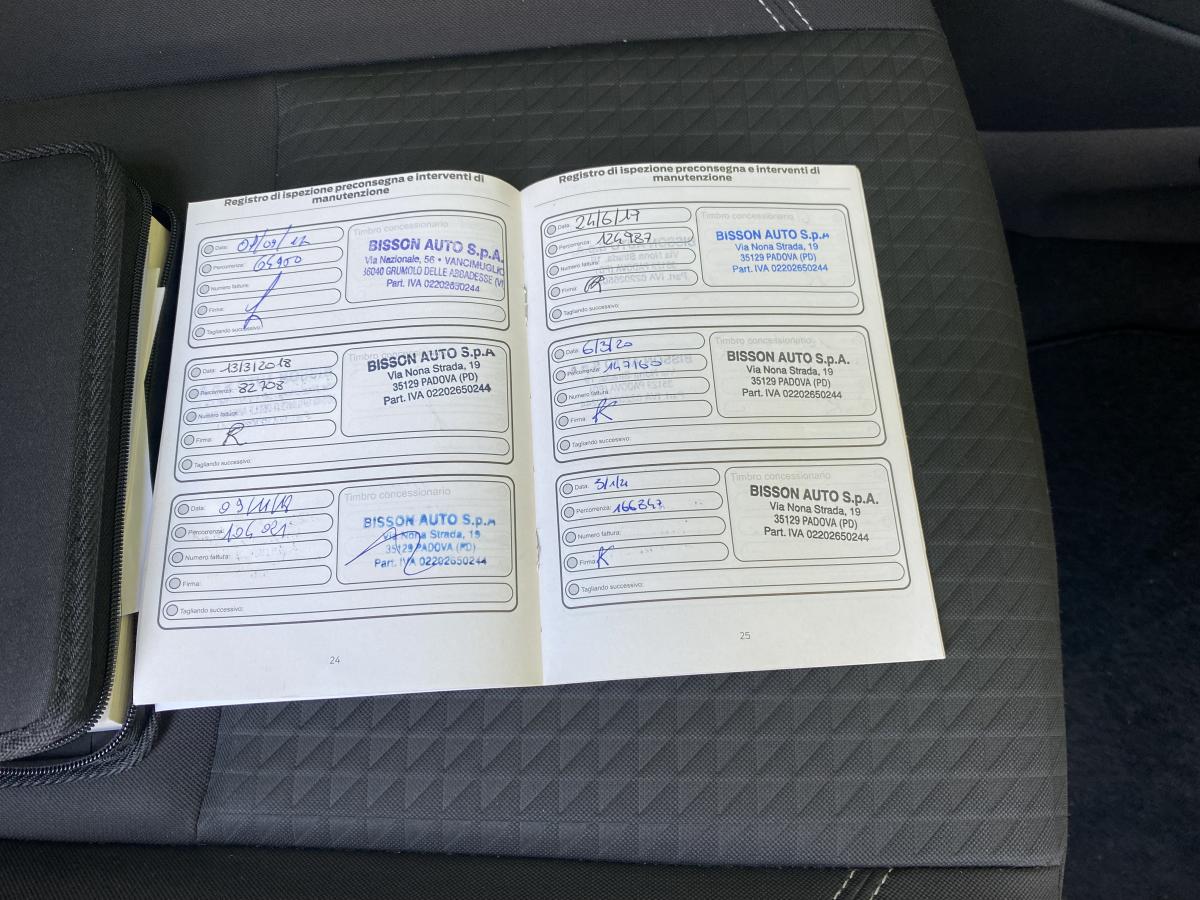 Registro di ispezione preconsegna e interventi di
manutenzione
Data:
Percorrenza:
Numero fattura:
Firma:
Tagliando successivo:
Timbro concessionario
BISSON AUTO S.p.A.
Via Nazionale, 56 • VANCIMUGLIO
36040 GRUMOLO DELLE ABBADESSE (VI
Part. IVA 02202650244
Data: 13/3/2018
Percorrenza: 82708
Numero fattura:
Firma: R
Tagliando successivo:
Timbro concessionario
BISSON AUTO S.p.A
Via Nona Strada, 19
35129 PADOVA (PD)
Part. IVA 02202650244
Data:
Percorrenza: 104021
Numero fattura:
Firma:
Tagliando successivo:
Timbro concessionario
BISSON AUTO S.p.A
Via Nona Strada, 19
35129 PADOVA (PD)
Part. IVA 02202650244
24
Registro di ispezione preconsegna e interventi di
manutenzione
Data: 24/6/19
Percorrenza: 124987
Numero fattura:
Firma: R
Tagliando successivo:
Timbro concessionario
BISSON AUTO S.p.A
Via Nona Strada, 19
35129 PADOVA (PD)
Part. IVA 02202650244
Data: 6/3/20
Percorrenza: 147160
Numero fattura:
Firma: R
Tagliando successivo:
Timbro concessionario
BISSON AUTO S.p.A.
Via Nona Strada, 19
35129 PADOVA (PD)
Part. IVA 02202650244
Data: 5/1/21
Percorrenza: 166347
Numero fattura:
Firma: R
Tagliando successivo:
Timbro concessionario
BISSON AUTO S.p.A.
Via Nona Strada, 19
35129 PADOVA (PD)
Part. IVA 02202650244
25